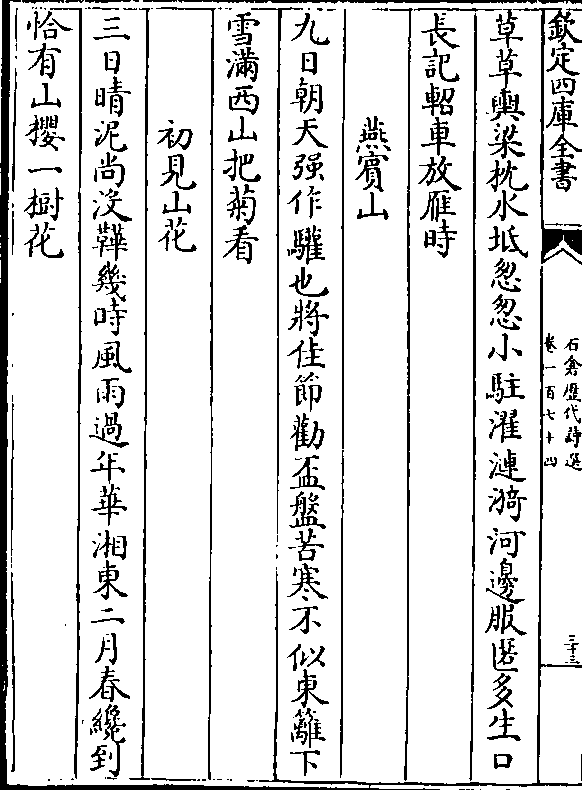 欽定四庫全書
石倉歷代詩選
卷一百七十四
三十三
草草輿梁枕水坻怱怱小駐濯漣漪河邊服匿多生口
長記軺車放雁時
燕賓山
九日朝天强作驩也將佳節勸盃盤苦寒不似東籬下
雪滿西山把菊看
初見山花
三日晴泥尚沒鞾幾時風雨過年華湘東二月春纔到
恰有山櫻一樹花